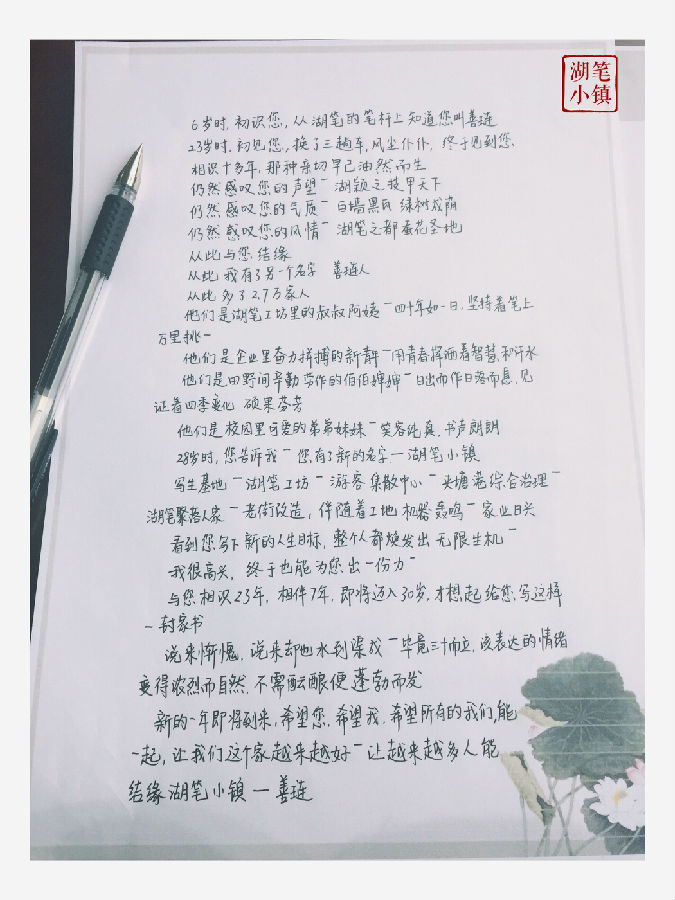 湖笔
小镇
6岁时,初识您,从湖笔的笔杆上知道您叫善琏
23岁时,初见您,换了三趟车,风尘仆仆,终于见到您.
相识十多年,那种亲切早已油然而生
仍然感叹您的声望—湖颖之技甲天下
仍然感叹您的气质—白墙黑瓦 绿树成荫
仍然感叹您的风情—湖笔之都 蚕花圣地
从此与您结缘
从此我有了另一个名字 善琏人
从此多了2.7万家人
他们是湖笔工坊里的叔叔阿姨—四十年如一日,坚持着笔上
万里挑一
他们是企业里奋力拼搏的新青年—用青春挥洒着智慧和汗水
他们是田野间辛勤劳作的伯伯婶婶—日出而作日落而息,见
证着四季变化 硕果芬芳
他们是校园里可爱的弟弟妹妹—笑容纯真,书声朗朗
28岁时,您告诉我—您有了新的名字—湖笔小镇
写生基地—湖笔工坊—游客集散中心—夹塘港综合治理—
湖笔聚落人家—老街改造,伴随着工地机器轰鸣—家业日兴
看到您写下新的人生目标,整个人都焕发出无限生机—
我很高兴,终于也能为您出一份力—
与您相识23年,相伴7年,即将迈入30岁,才想起给您写这样
一封家书
说来惭愧,说来却也水到渠成—毕竟三十而立,该表达的情绪
变得浓烈而自然,不需酝酿便蓬勃而发
新的一年即将到来,希望您,希望我,希望所有的我们,能
一起,让我们这个家越来越好—让越来越多人能
结缘湖笔小镇—善琏